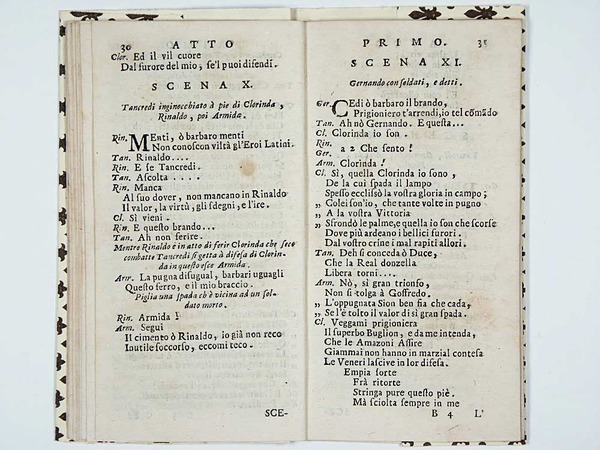 30 ATTO
Clor. Ed il vil cuore
Dal furore del mio, se'l puoi difendi.
SCENA X.
Tancredi inginocchiato à piè di Clorinda,
Rinaldo, poi Armida.
Rin. MEnti, ò barbaro menti
Non conoscon viltà gl'Eroi Latini.
Tan. Rinaldo....
Rin. E se Tancredi.
Tan. Ascolta....
Rin. Manca
Al suo dover, non mancano in Rinaldo
Il valor, la virtù, gli sdegni, e l'ire.
Cl. Sì vieni.
Rin. E questo brando...
Tan. Ah non ferire.
Mentre Rinaldo è in atto di ferir Clorinda che seco
combatte Tancredi si getta à difesa di Clorin-
da in questo esce Armida.
Arm. La pugna disugual, barbari uguagli
Questo ferro, e il mio braccio.
Piglia una spada ch'è vicina ad un sol-
dato morto.
Rin. Armida!
Arm. Segui
Il cimento ò Rinaldo, io già non reco
Inutile soccorso, eccomi teco.
SCE-
PRIMO. 31
SCENA XI.
Gernando con soldati, e detti.
Ger. CEdi ò barbaro il brando,
Prigioniero t'arrendi, io tel comãdo
Tan. Ah nò Gernando. E questa...
Cl. Clorinda io son.
Rin.
Ger. a 2 Che sento!
Arm. Clorinda!
Cl. Sì, quella Clorinda io sono,
De la cui spada il lampo
Spesso ecclissò la vostra gloria in campo;
„ Colei son'io, che tante volte in pugno
„ A la vostra Vittoria
„ Sfrondò le palme, e quella io son che scorse
Dove più ardeano i bellici furori.
Dal vostro crine i mal rapiti allori.
Tan. Deh si conceda ò Duce,
Che la Real donzella
Libera torni....
Arm. Nò, sì gran trionfo,
Non si tolga à Goffredo.
„ L'oppugnata Sion ben fia che cada,
„ Se l'è tolto il valor di sì gran spada.
Cl. Veggami prigioniera
Il superbo Buglion, e da me intenda,
Che le Amazoni Assire
Giammai non hanno in marzial contesa
Le Veneri lascive in lor difesa.
Empia sorte
Frà ritorte
Stringa pure questo piè.
Mà sciolta sempre in me
B 4 L'